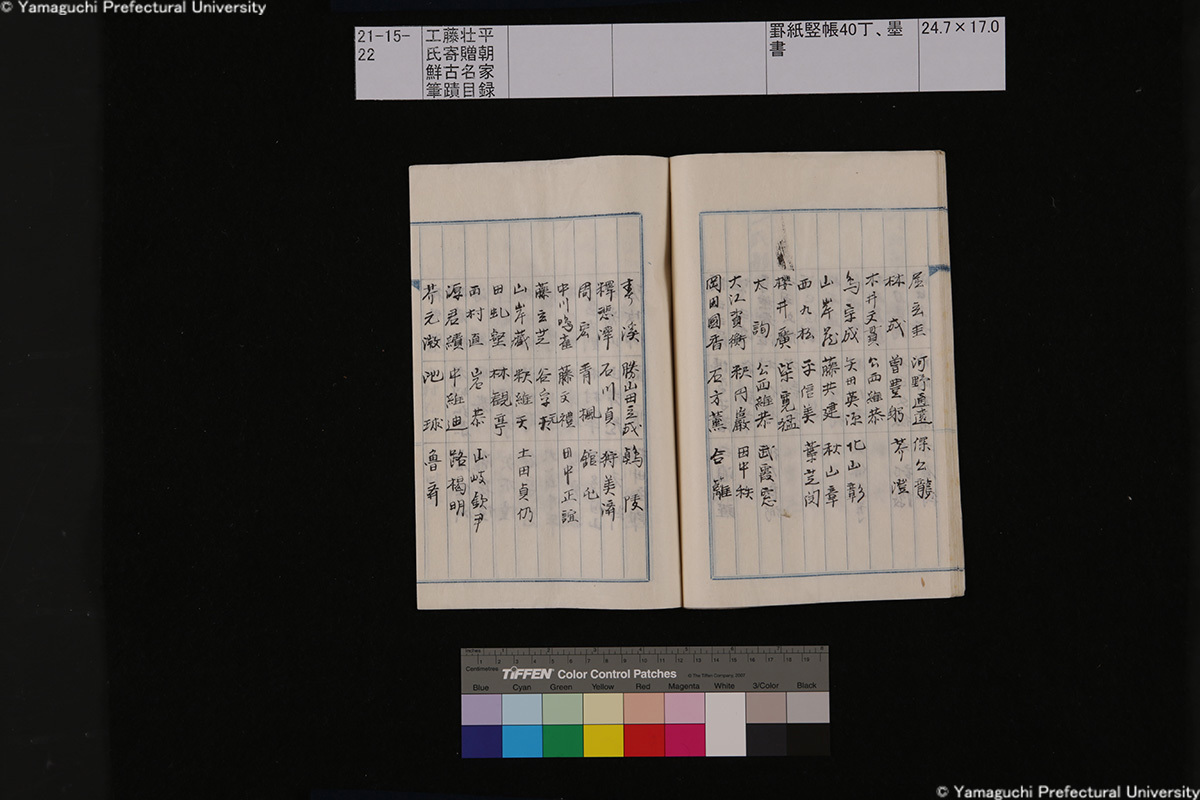 © Yamaguchi Prefectural University
21-15-22
工藤壮平氏寄贈朝鮮古名家筆蹟目録
罫紙竪帳40丁、墨書
24.7×17.0
屈玄圭 河野通遠 保公龍
林彧 曽豊弼 芥澄
木井文員 公西維恭
鳥宗成 矢田英源 北山彰
山岸 藤共建 秋山章
西九松 平信美 葉芝岡
櫻井廣 柴寛猛
大詢 公西維恭 武霞窓
大江資衡 秋円巖 田中秩
岡田國香 石方薫 合離
春溪 勝山田立成 鶴陵
釋慈澤 石川貞 狩美濟
周宏 青楓 舘屯
中川鳴雀 藤文禮 田中正誼
藤玄芝 谷
山岸蔵 秋維天 土田貞仍
田虬蟄 林觀亭
西村直 岩恭 山岐欽尹
源君績 中維迪 路楊明
芥元澂 池球 魯斎
inches
Centimetres
TIFFEN Color Control Patches
© The Tiffen Company, 2007
Blue Cyan Green Yellow Red Magenta White 3/Color Black
© Yamaguchi Prefectural University